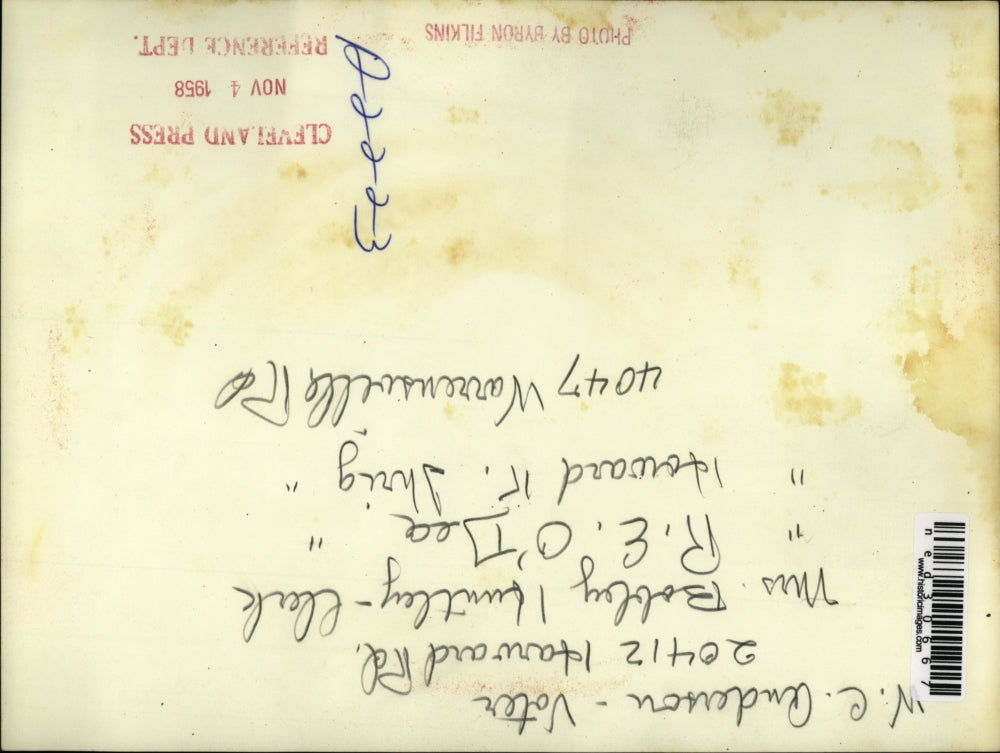 W. C. Anderson - Voter
20412 Harvard Rd.
Mrs. Bobbey Huntley - Clerk
" R. E. O'Dea "
" Howard K. Ihrig "
4047 Warrensville Rd
CLEVELAND PRESS
NOV 4 1958
REFERENCE DEPT.
PHOTO BY BYRON FILKINS
ned30667
www.historicimages.com